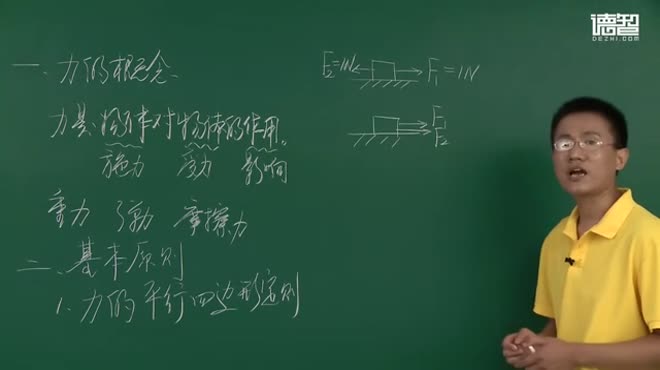 一、力的概念、
力是:物体对物体的作用。
施力 受力 影响
重力 弹力 摩擦力
二、基本原则
1、力的平行四边形定则
F₂=1N F₁=1N
F₁
F₂
德智
DEZHI.COM